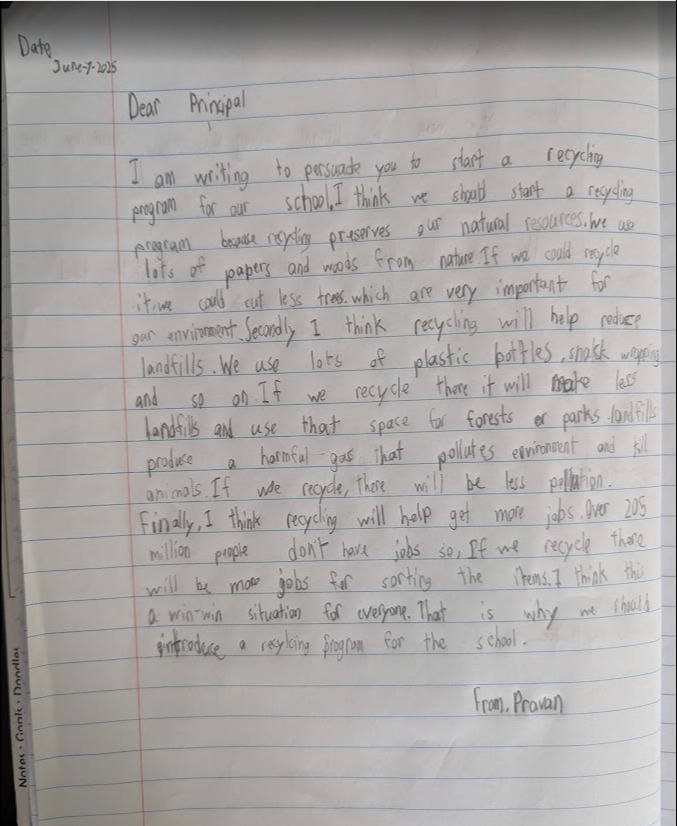 Date
June-7-2025
Dear Principal
I am writing to persuade you to start a recycling
program for our school.I think we should start a recycling
program because recycling preserves our natural resources.We use
lots of papers and woods from nature.If we could recycle
it,we could cut less trees.which are very important for
our environment.Secondly I think recycling will help reduce
landfills.We use lots of plastic bottles,snack wrapping
and so on.If we recycle there it will make less
landfills and use that space for forests or parks.landfills
produce a harmful gas that pollutes environment and kill
animals.If we recycle, there will be less pollution.
Finally,I think recycling will help get more jobs.Over 205
million people don't have jobs so, If we recycle there
will be more jobs for sorting the items.I think this
a win-win situation for everyone.That is why we should
introduce a recylcing program for the school.
From, Pravan
Notes • Goals • Doodles